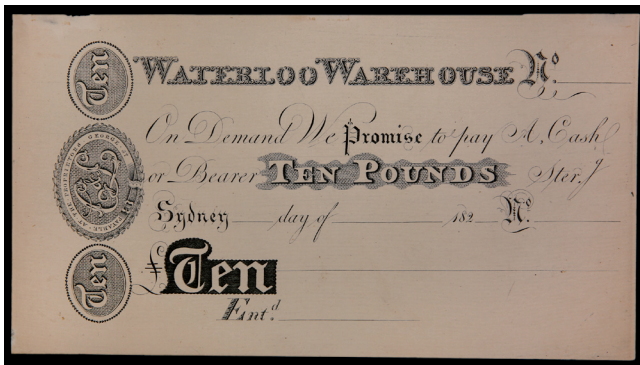 WATERLOO WAREHOUSE No.
On Demand We Promise to pay A. Cash
or Bearer TEN POUNDS Ster.g
Sydney day of 182 No.
£Ten
Ent.d
Ten
Ten
GEORGE ST